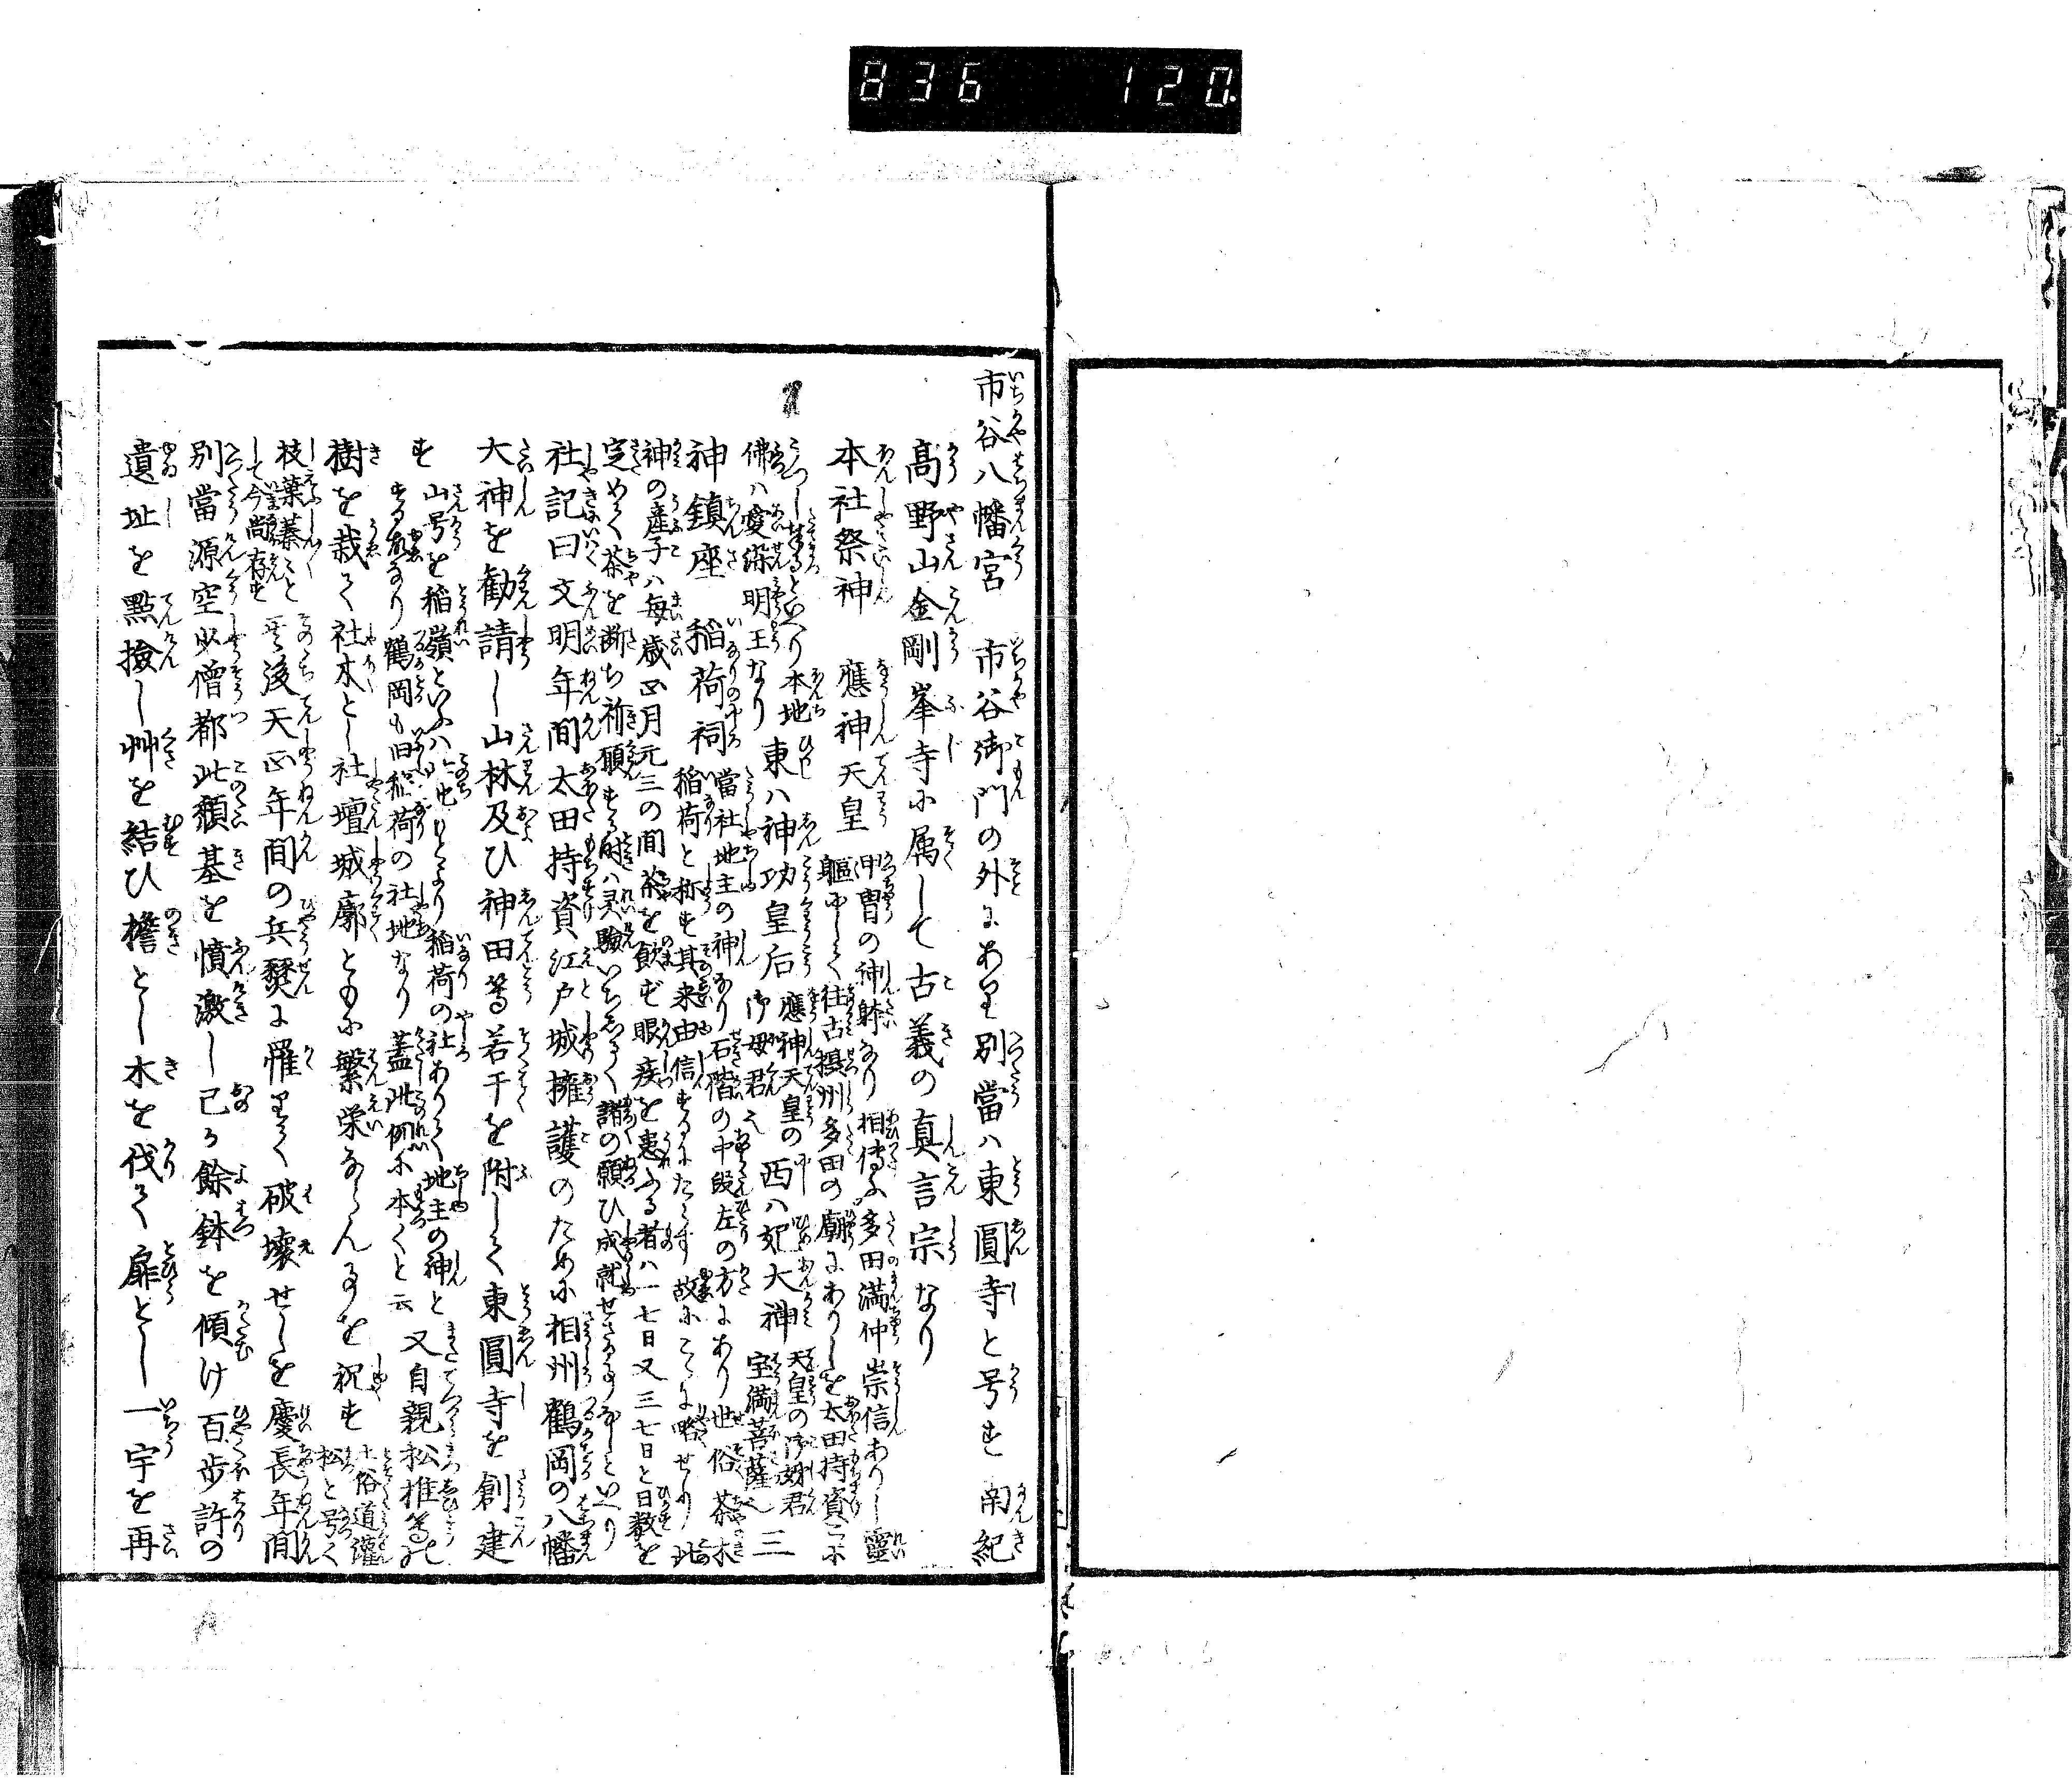 836 120
市谷八幡宮 市谷御門の外にあり別當ハ東圓寺と号す南紀
高野山金剛峯寺に属して古義の真言宗なり
本社祭神 應神天皇 甲冑の神躰なり相傳ふ多田満仲崇信ありし靈
軀にして往古摂州多田の廟にありしを太田持資こゝに
うつし奉ると云り本地
佛ハ愛染明王なり 東ハ神功皇后 應神天皇の
御母君也 西ハ妃大神 天皇の御妣君
宝満菩薩 三
神鎮座 稲荷祠 當社地主の神なり石階の中段左の方にあり世俗茶木
稲荷と称す其来由信するにたらす故にこゝに略せり此
神の産子ハ毎歳正月元三の間茶を飲ず眼疾を患ふる者ハ一七日又三七日と日数を
定めて茶を断ち祈願する时ハ灵驗いちしるく諸の願ひ成就せさる事なしといへり
社記曰文明年間太田持資江戸城擁護のために相州鶴岡の八幡
大神を勧請し山林及ひ神田等若干を附して東圓寺を創建
す 山号を稲嶺といふハ此地ひとより稲荷の社ありて地主の神と
する故なり鶴岡も旧稲荷の社地なり蓋此例に本くと云 又自親松椎等の
樹を栽て社木とし社壇城廓ともに繁栄ならん事を祝す 土俗道灌
松と号く
枝葉蓁々と
して今尚存す 其後天正年間の兵燹に罹りて破壊せしを慶長年間
別當源空少僧都此頽基を憤激し己か餘鉢を傾け百歩許の
遺址を點撿し艸を結ひ檐とし木を伐て扉とし一宇を再